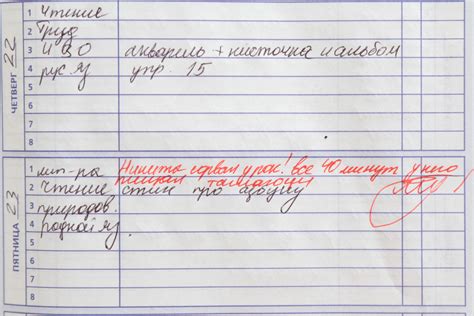 ЧЕТВЕРГ 22
1 Чтение
2 Труд
3 ИЗО акварель + кисточка и альбом
4 рус. яз упр. 15
5
6
7
8
ПЯТНИЦА 23
1 мт-ра Никита сорвал урок! Все 40 минут у него
пищал тамагочи
2 Чтение стих про
3 природов.
4 родной яз.
5
6
7
8